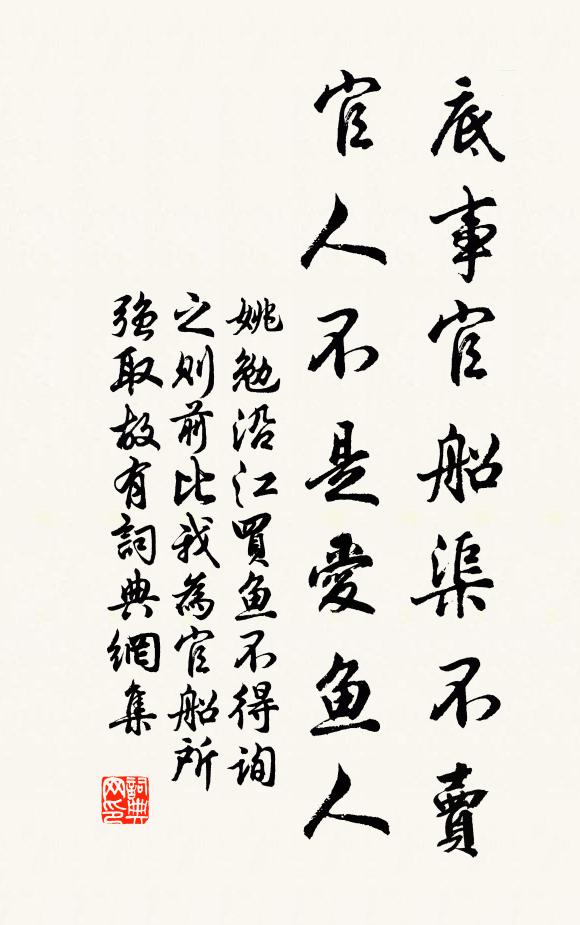 底事官船渠不賣
官人不是愛鱼人
姚勉沿江買鱼不得询
之则前比我為官船所
强取故有詞典網集
詞典
网印